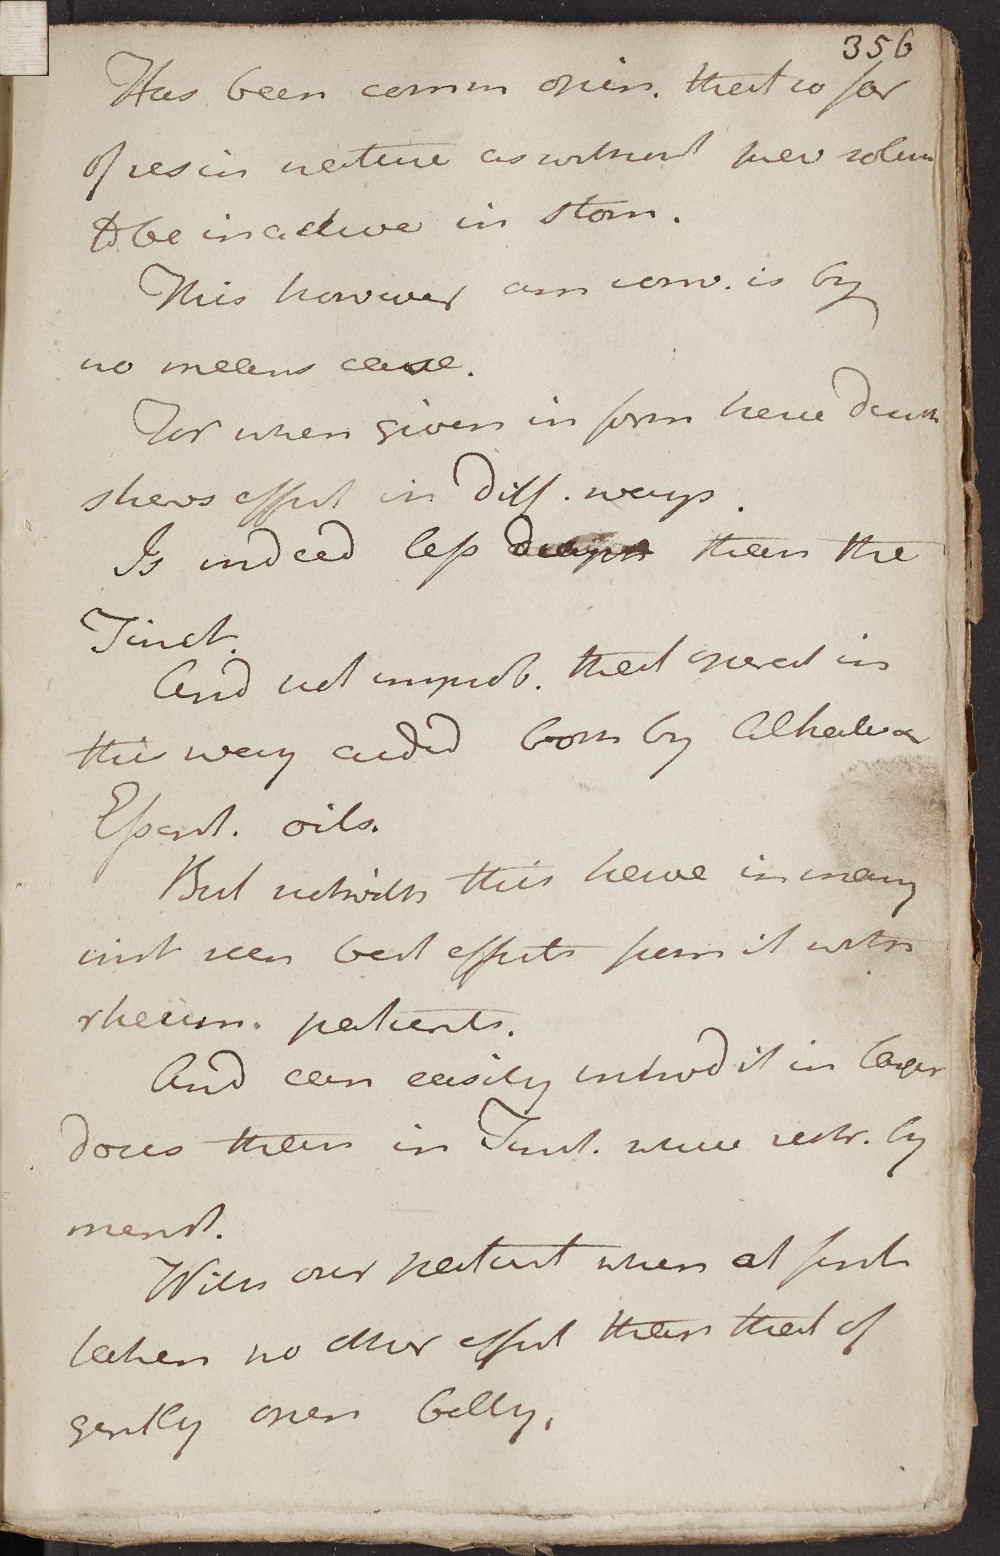 356
Has been comm opin. that so far
of resin nature as without prev solun
to be inactive in Stom.
This however am conv. is by
no means case.
For when given in form have
shews effect in Diff. ways.
Is indeed less than the
Tinct.
And not improb. that operat in
this way aided both by Alkali &
Essent. oils.
But notwith this have in many
inst seen best effects from it with
rheum. patients.
And can easily introd it in larger
doses than in Tinct. where restr. by
menst.
With our patient when at first
taken no other effect than that of
gently open belly.